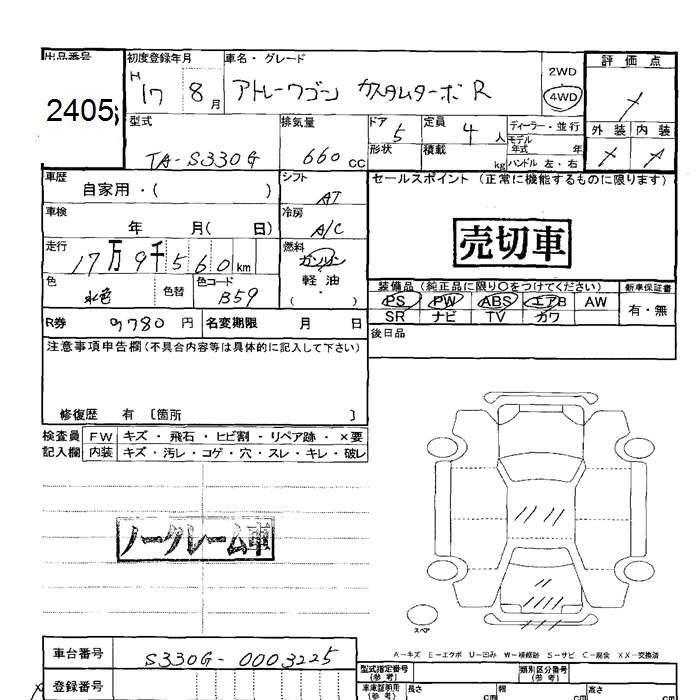 出品番号 初度登録年月 車名・グレード 評価点
2405 H17 8月 アトレーワゴン カスタムターボR 2WD 4WD
型式 排気量 ドア 5 定員 4人 ディーラー・並行 外装 内装
TA-S330G 660cc 形状 積載 kg モデル年式 年 ハンドル 左・右
車歴 自家用・( ) シフト AT セールスポイント (正常に機能するものに限ります)
車検 年 月( 日) 冷房 A/C 売切車
走行 17万9千560km 燃料 ガソリン 軽油 ・( )
色 水色 色替 色コード B59 装備品 (純正品に限り〇をつけてください) 新車保証書
PS PW ABS エアB AW 有・無
R券 9780円 名変期限 月 日 SR ナビ TV カワ
後日品
注意事項申告欄(不具合内容等は具体的に記入して下さい)
修復歴 有 〔箇所 〕
検査員 FW キズ・飛石・ヒビ割・リペア跡・×要
記入欄 内装 キズ・汚レ・コゲ・穴・スレ・キレ・破レ
ノークレーム車
スペア
A−キズ E−エクボ U−凹み W−補修跡 S−サビ C−腐食 XX−交換済
車台番号 S330G-0003225 型式指定番号(参考) 類別区分番号(参考)
登録番号 車庫証明用(参考) 長さ cm 幅 cm 高さ cm